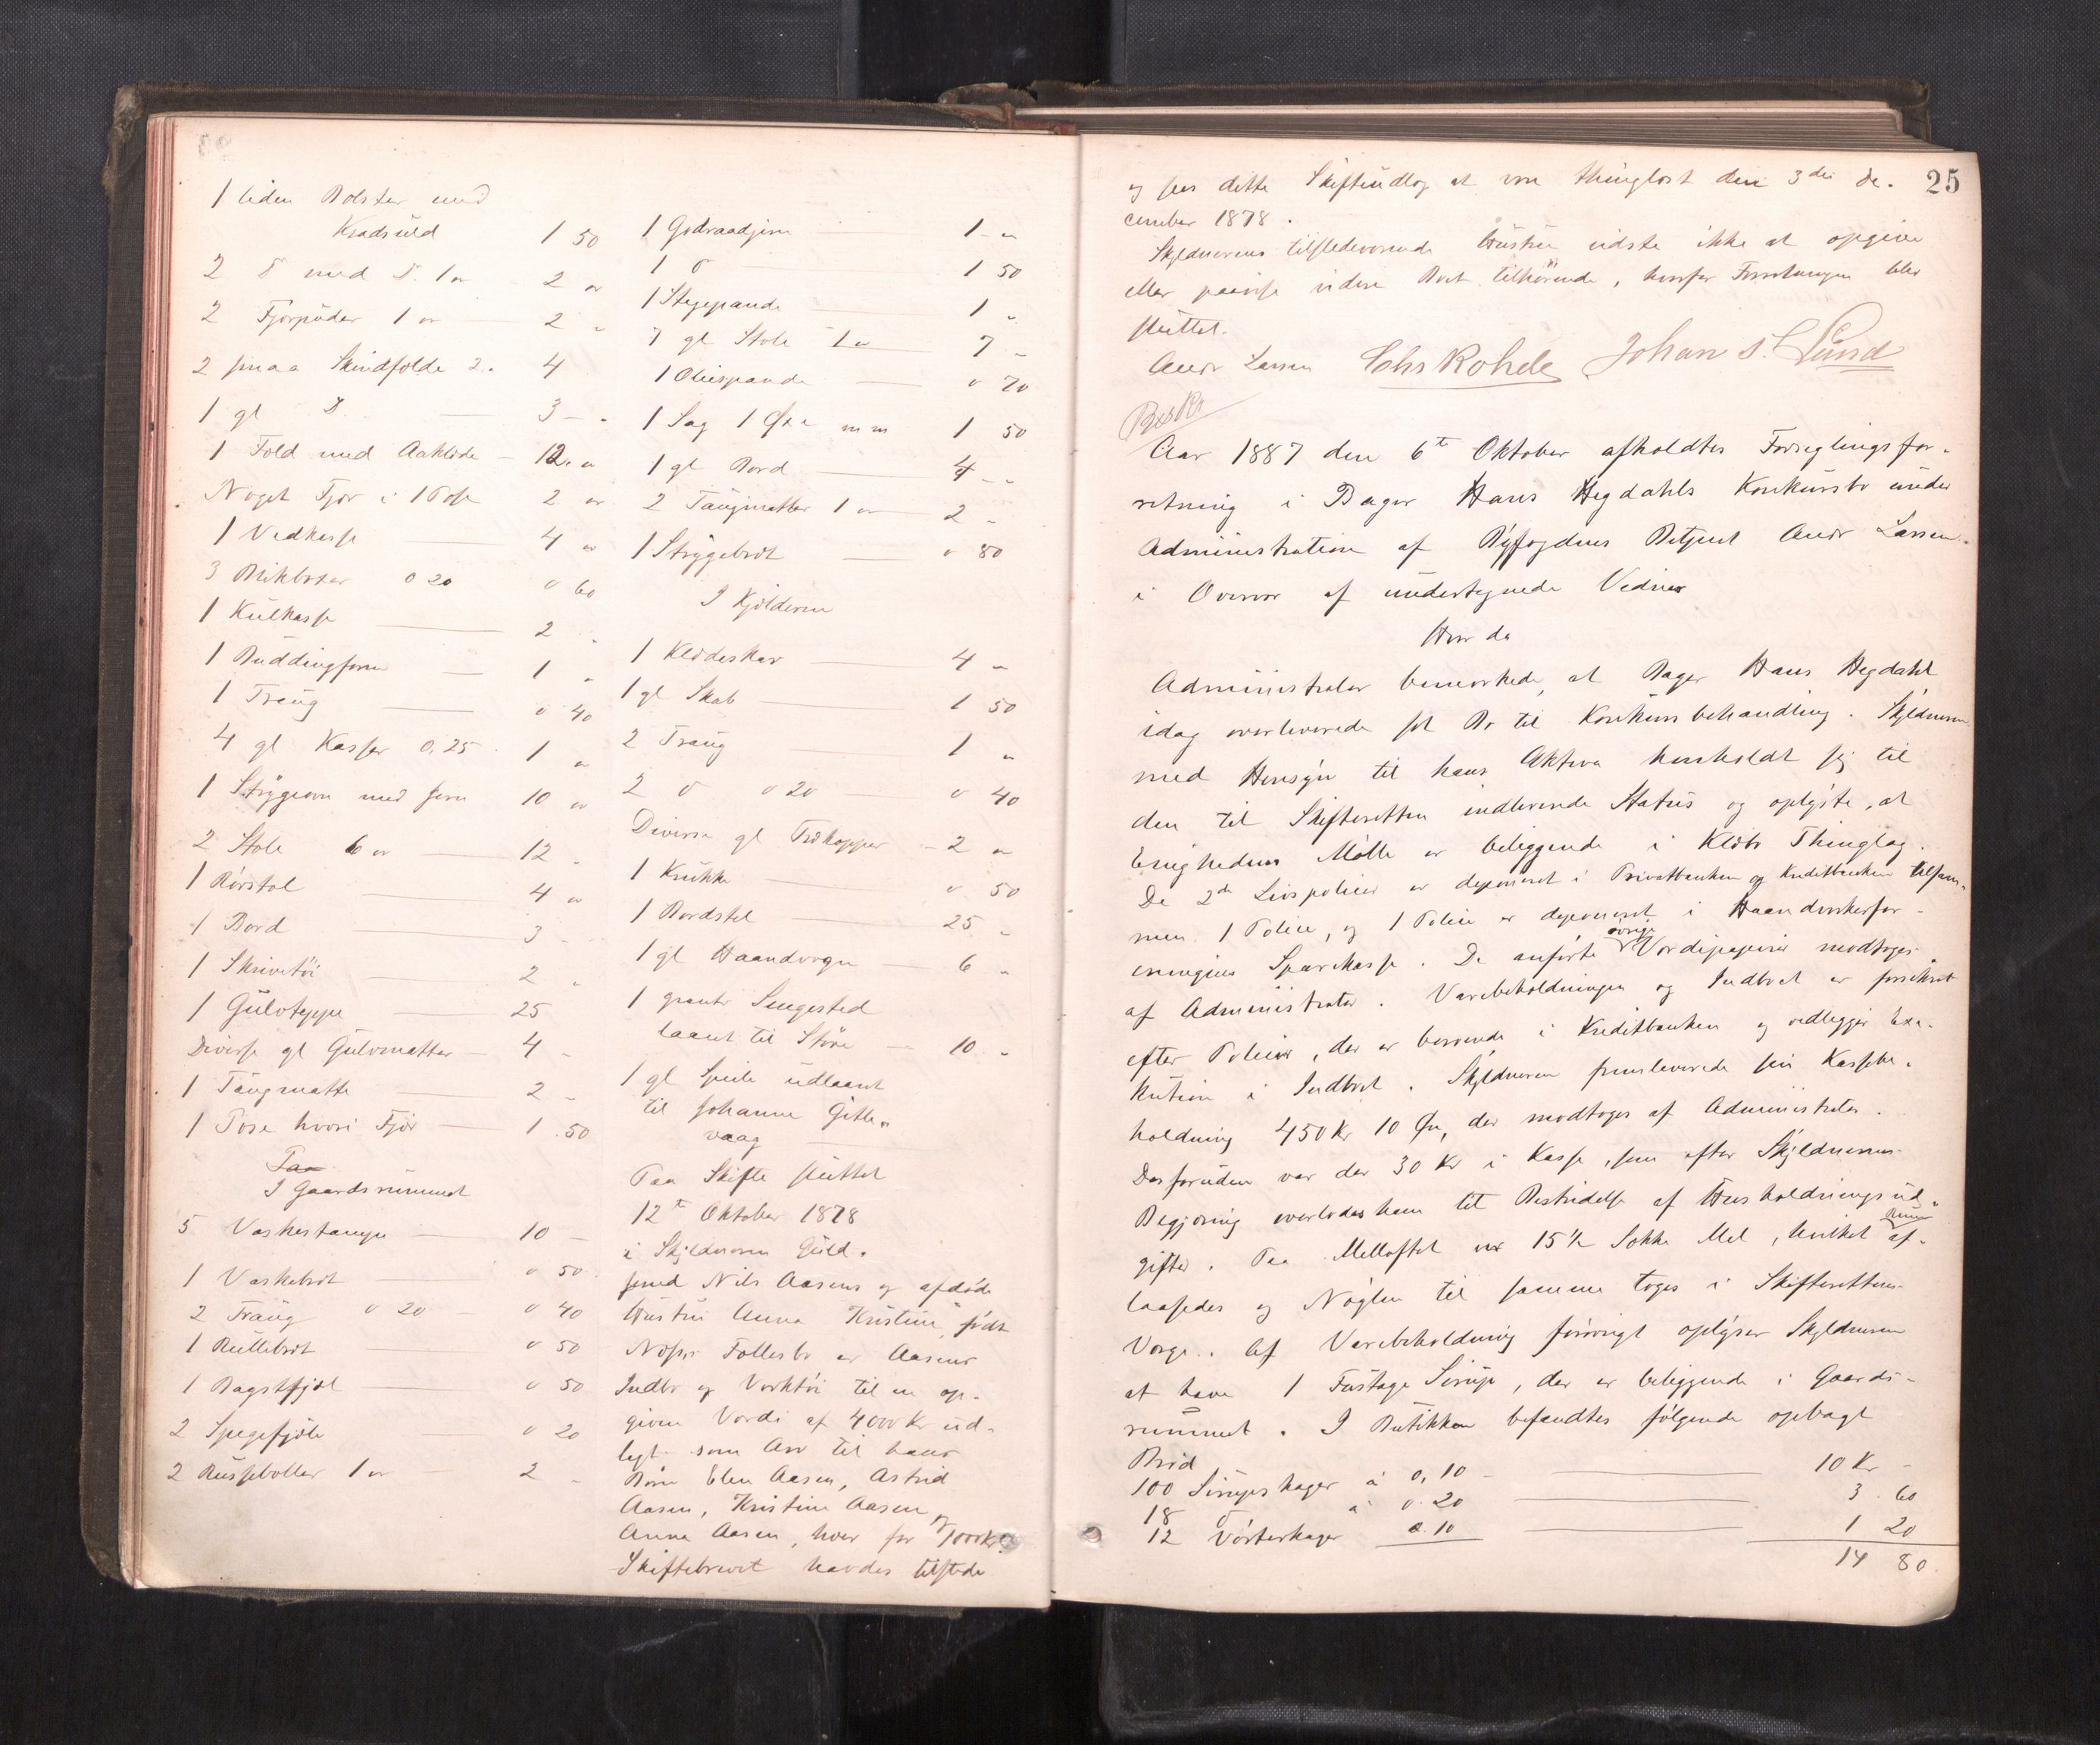 1 liden Bolster med
Kradsuld 1 50
2 D med D. 1 „ 2 „
2 Fjørpuder 1 „ 2 „
2 smaa Skindfolde 2 „ 4
1 gl D. 3 „
1 Fold med Aaklæde 12 „
Noget Fjør i 1 Pose 2 „
1 Vedkasse 4 „
3 Blikboxer 0 20 0 60
1 Kulkasse 2 „
1 Puddingform 1 „
1 Traug 0 40
4 gl Kasser 0,25 1 „
1 Strygeovn med Jern 10 „
2 Stole 6 „ 12 „
1 Rørstol 4 „
1 Bord 3 „
1 Skrivetøi 2 „
1 Gulvteppe 25
Diverse gl Gulvmatter 4 „
1 Taugmatte 2 „
1 Pose hvori Fjør 1 50
Paa
I Gaardsrummet
5 Vaskestampe 10 „
1 Vaskebræt 0 50
2 Traug 0 20 0 40
1 Rullebræt 0 50
1 Bagstfjæl 0 50
2 Spegefjæle 0 20
2 Russeboller 1 „ 2 „
1 Godraadjern 1 „
1 D 1 50
1 Stegepande 1 „
7 gl Stole 1 „ 7 „
1 Oliespande 0 70
1 Sag 1 Øxe m m 1 50
1 gl Bord 4 „
2 Taugmatter 1 „ 2 „
1 Strygebræt 0 80
I Kjelderen
1 Klædeskar 4 „
1 gl Skab 1 50
2 Traug 1 „
2 D 0 20 0 40
Diverse gl Trækopper 2 „
1 Krukke 0 50
1 Bordstel 25 „
1 gl Haandvogn 6 „
1 Sengested
laant til Støre 10 „
1 gl Speile udlaant
til Johanne Gitle„
vaag
Paa Skifte sluttet
12te Oktober 1878
i Skyldneren Guld„
smed Nils Aasens og afdøde
Hustru Anna Kristine, født
Follesbø er Aasens
Indbo og Værktøi til en op„
given Værdi af 4000 Kr ud„
lagt som Arv til hans
Børn Elen Aasen, Astrid
Aasen, Kristine Aasen og
Anna Aasen, hver for 1000 Kr.
Skiftebrevet havdes tilstede
25
og sees dette Skifteudlæg at være thinglæst den 3die De„
cember 1878.
Skyldnerens tilstedeværende Hustru vidste ikke at opgive
eller paavise videre Boet tilhørende, hvorfor Forretningen blev
sluttet.
Andr Larsen Chs Rohde Johan S. Lund
Beskr
Aar 1887 den 6te Oktober afholdtes Forseglingsfor„
retning i Bager Hans Hegdahls Konkursbo under
Administration af Byfogdens Betjent Andr Larsen
i Overvær af undertegnede Vidner
Hvor da
Administrator bemærkede, at Bager Hans Hegdahl
idag overleverede sit Bo til Konkursbehandling. Skyldneren
med Hensyn til hans Aktiva henholdt sig til
den til Skifteretten indleverede Status og oplyste, at
Enighedens Mølle er beliggende i Klæbo Thinglag.
De 2de Livspolicer er deponeret i Privatbanken og Kreditbanken tilsam„
men 1 Police, og 1 Police er deponeret i Haandværkerfor„
eningens Sparekasse. De anførte øvrige Værdipapirer modtoges
af Administrator. Varebeholdningen og Indboet er forsikret
efter Policer, der er beroende i Kreditbanken og vedligger Exe„
kution i Indboet. Skyldneren fremleverede sin Kassebe„
holdning 450 Kr 10 Øre, der modtoges af Administrator.
Desforuden var der 30 Kr i Kasse, som efter Skyldnerens
Begjæring overlodes ham til Bestridelse af Husholdningsud„
gifter. Paa Melloftet var 15½ Sække Mel, hvilket Rum af„
laasedes og Nøglen til samme toges i Skifterettens
Værge. Af Varebeholdning forøvrigt oplyser Skyldneren
at have 1 Fustage Sirup, der er beliggende i Gaards„
rummet. I Butikken befandtes følgende opbagt
Brød
100 Sirupskager á 0,10 10 Kr „
18 D á 0.20 3 60
12 Vørterkager 0.10 1 20
14 80